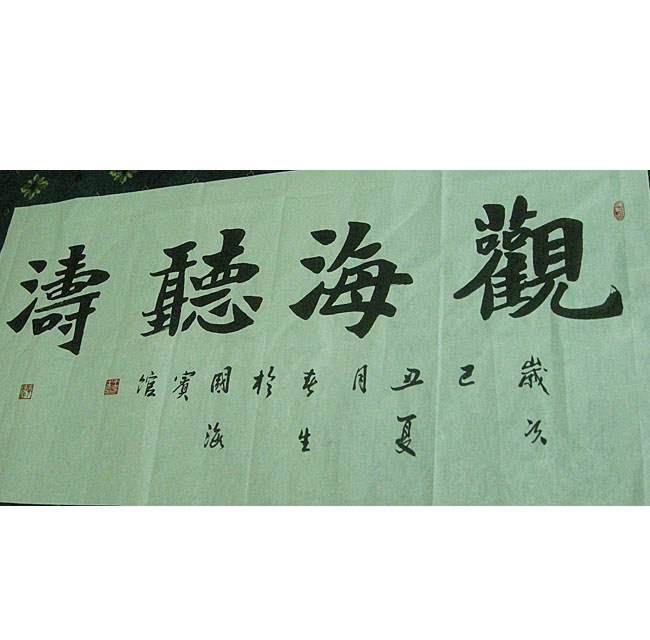 觀海聽濤
歲次
己
丑夏
月
春生
於
國海
賓
館